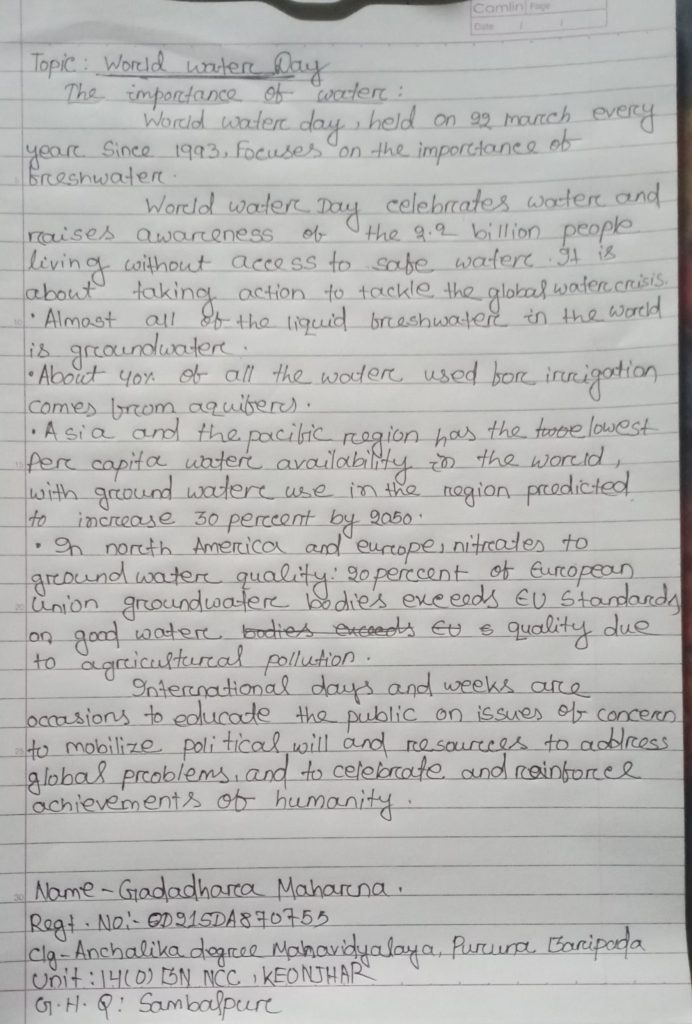 Camlin Page
Date / /
Topic: World water Day
The importance of water:
World water day, held on 22 march every
year. Since 1993, Focuses on the importance of
freshwater.
World water Day celebrates water and
raises awareness of the 2.2 billion people
living without access to safe water. It is
about taking action to tackle the global water crisis.
• Almost all of the liquid freshwater in the world
is groundwater.
• About 40% of all the water used for irrigation
comes from aquifers.
• Asia and the pacific region has the lowest
Per capita water availability in the world,
with ground water use in the region predicted
to increase 30 percent by 2050.
• In north America and europe, nitrates to
ground water quality: 20 percent of European
Union groundwater bodies exceeds EU Standards
on good water bodies exceeds EU s quality due
to agricultural pollution.
International days and weeks are
occasions to educate the public on issues of concern
to mobilize political will and resources to address
global problems, and to celebrate and reinforce
achievements of humanity.
Name - Gadadhara Maharna.
Regt. No:- OD21SDA870755
Clg - Anchalika degree Mahavidyalaya, Puruna Baripada
Unit: 14(O) BN NCC, KEONJHAR
G.H.Q: Sambalpur